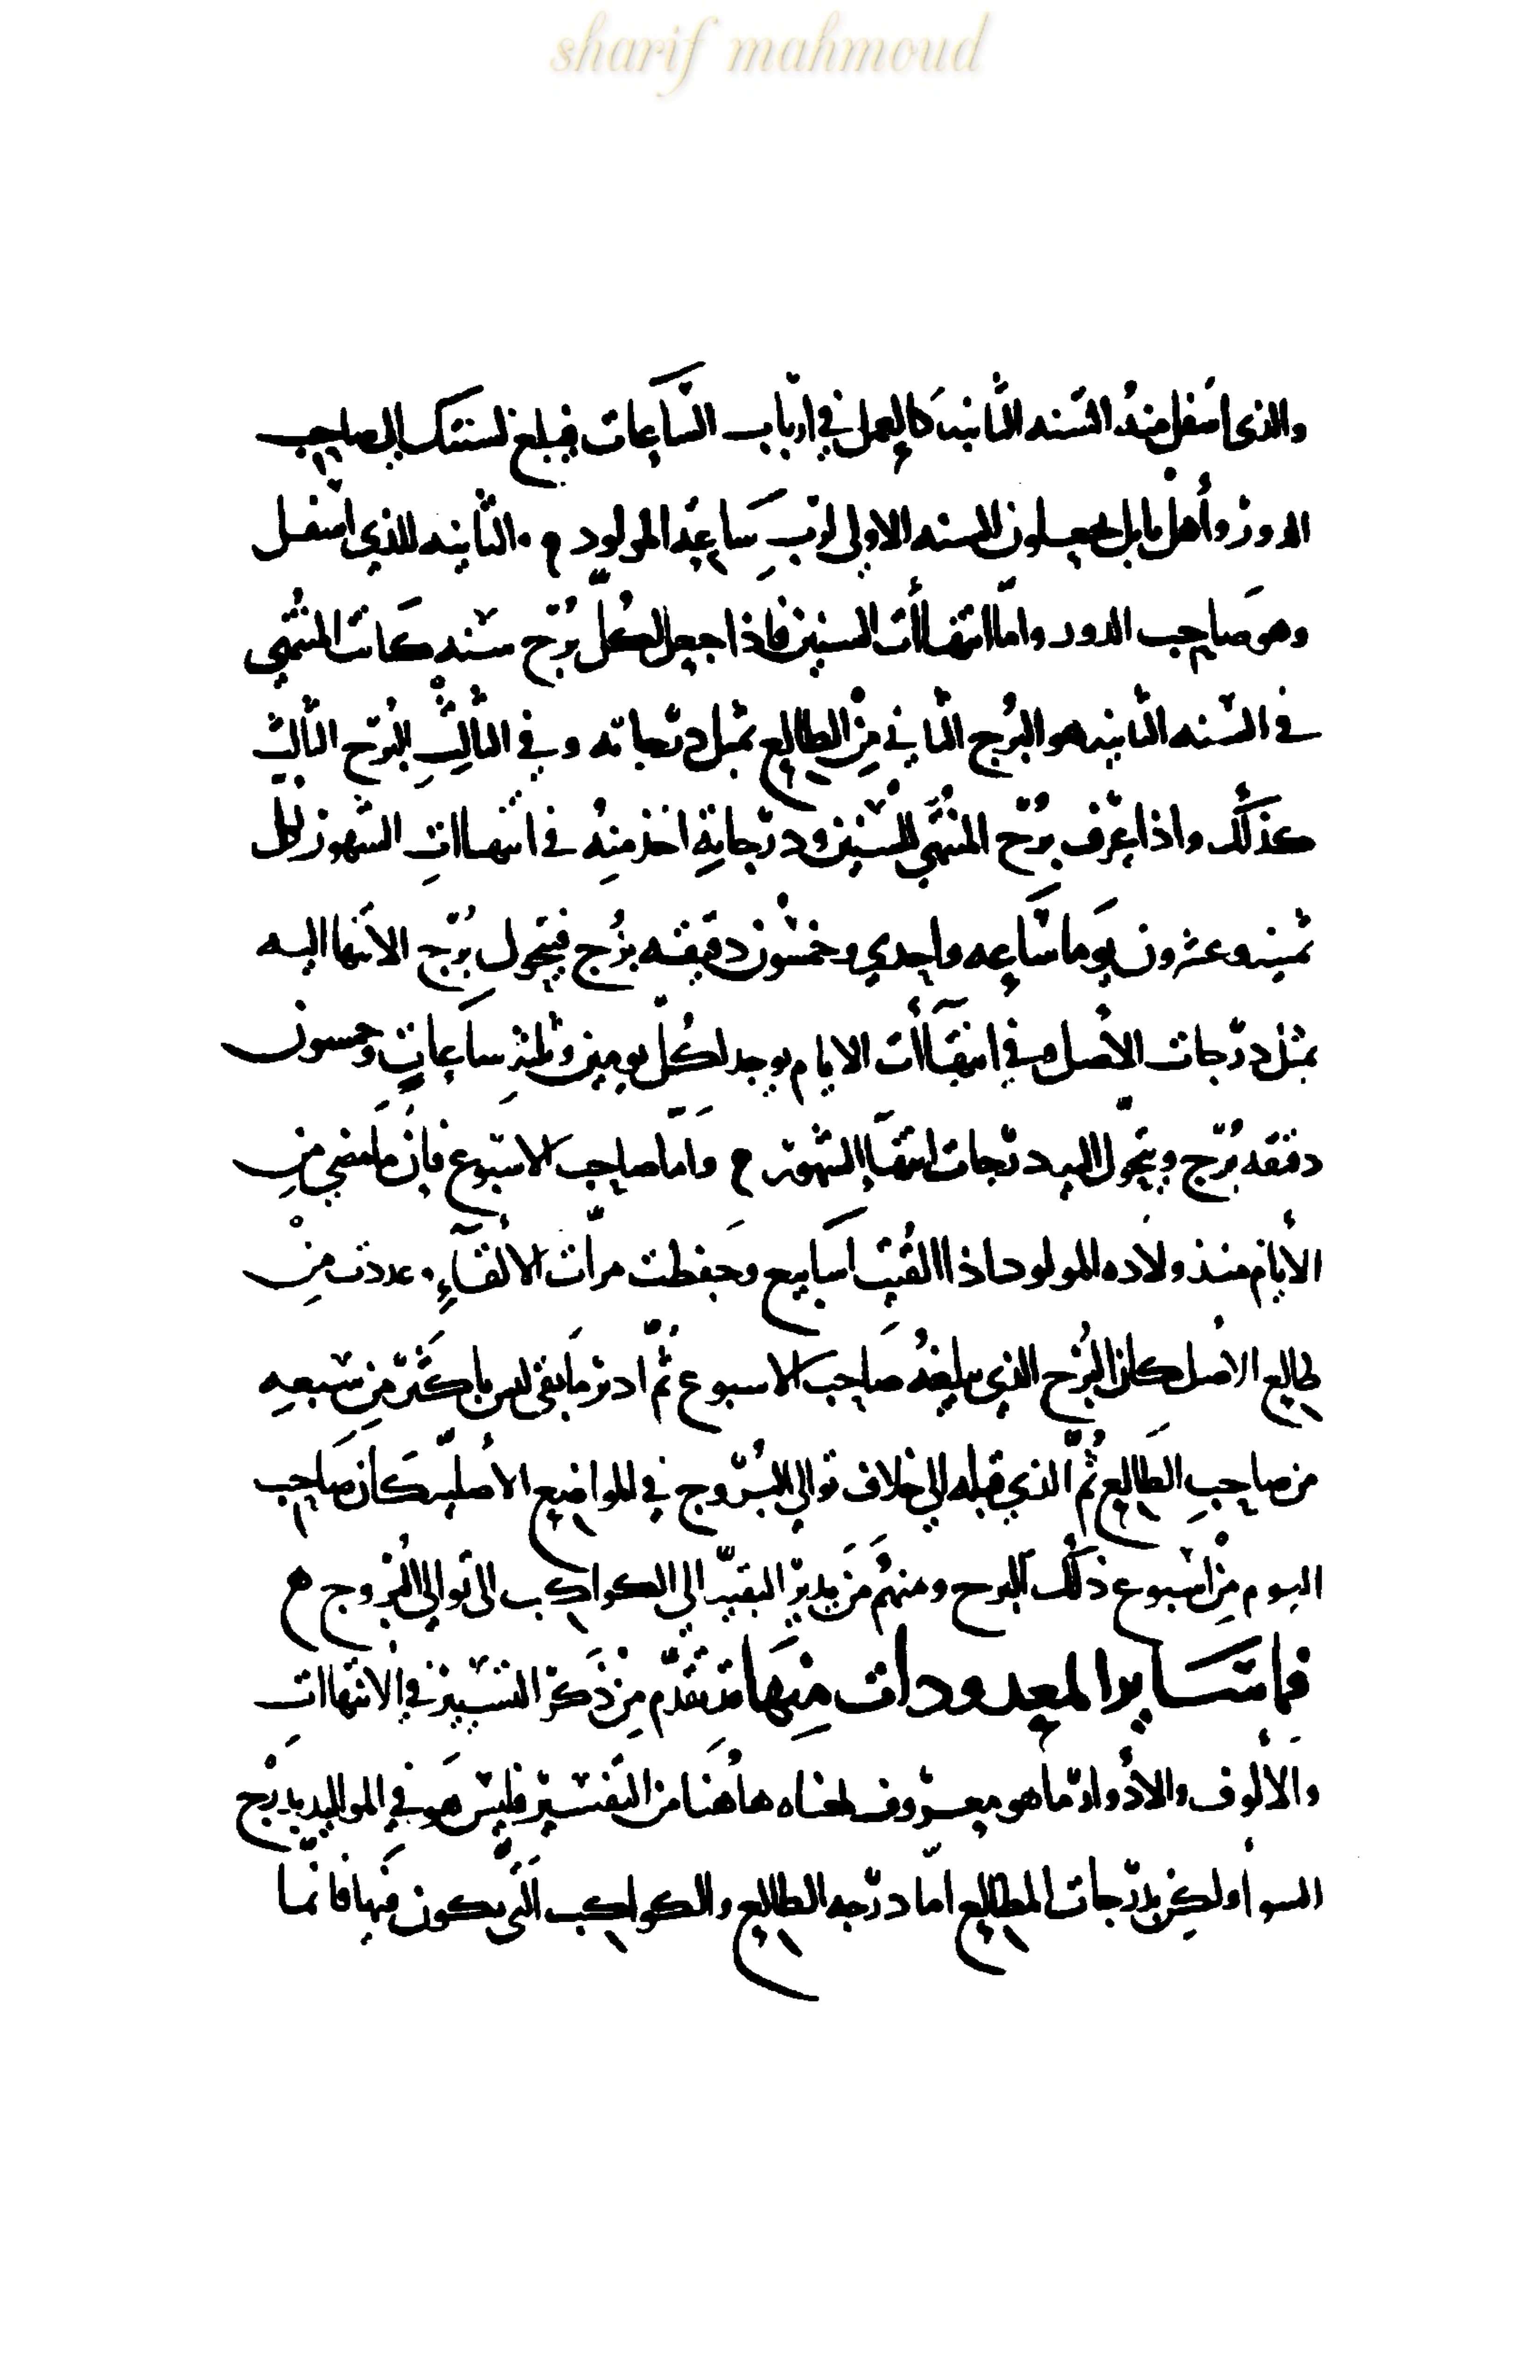 sharif mahmoud
والذى اسفل منه السنه الثانيه كالعمل في ارباب الساعات فيبلغ لسنتك الى صاحب
الدور وأهل بابل يجعلون السنه الاولى لرب ساعة المولود والثانيه للذى اسفل
وهو صاحب الدور واما انتهاأت السنين فاذا جعل لكل برج سنه كانت المنتهى
في السنه الثانيه هو البرج الثاني من الطالع بمثل درجاته وفي الثالث البرج الثالث
كذلك واذا عرف برج المنتهى للسنين ودرجاته اخذ منه في انتهاات الشهور لكل
ثمنيه وعشرون يوما ساعه واحدى وخمسون دقيقه برج فيتحول برج الانتها اليه
بمثل درجات الأصل وفي انتهاأت الايام يوجد لكل يومين وثلثة ساعات وخمسون
دقيقه برج ويتحول اليه درجات انتها الشهور واما صاحب الاسبوع فان ما مضى من
الأيام منذ ولاده المولود اذا القيت اسابيع وحفظت مرات الالقآء وعددت من
طالع الاصل كان البرج الذي يبلغه صاحب الاسبوع ثم ادر ما بقي ليس باكثر من سبعه
من صاحب الطالع ثم الذي قبله الى خلاف توالي البروج في المواضع الأصليه كان صاحب
اليوم من اسبوع ذلك البرج ومنهم من يدير البقيه الى الكواكب الى توالي البروج
فما ساير المعدودات منها قد تقدم من ذكر التسيير في الانتهاات
والألوف والأدوار ما هو معروف لمعناه هاهنا من التفسير فليس هو في المواليد بدرج
السوأ ولكن بدرجات المطالع اما درجه الطالع والكواكب التي يكون فيها فانما